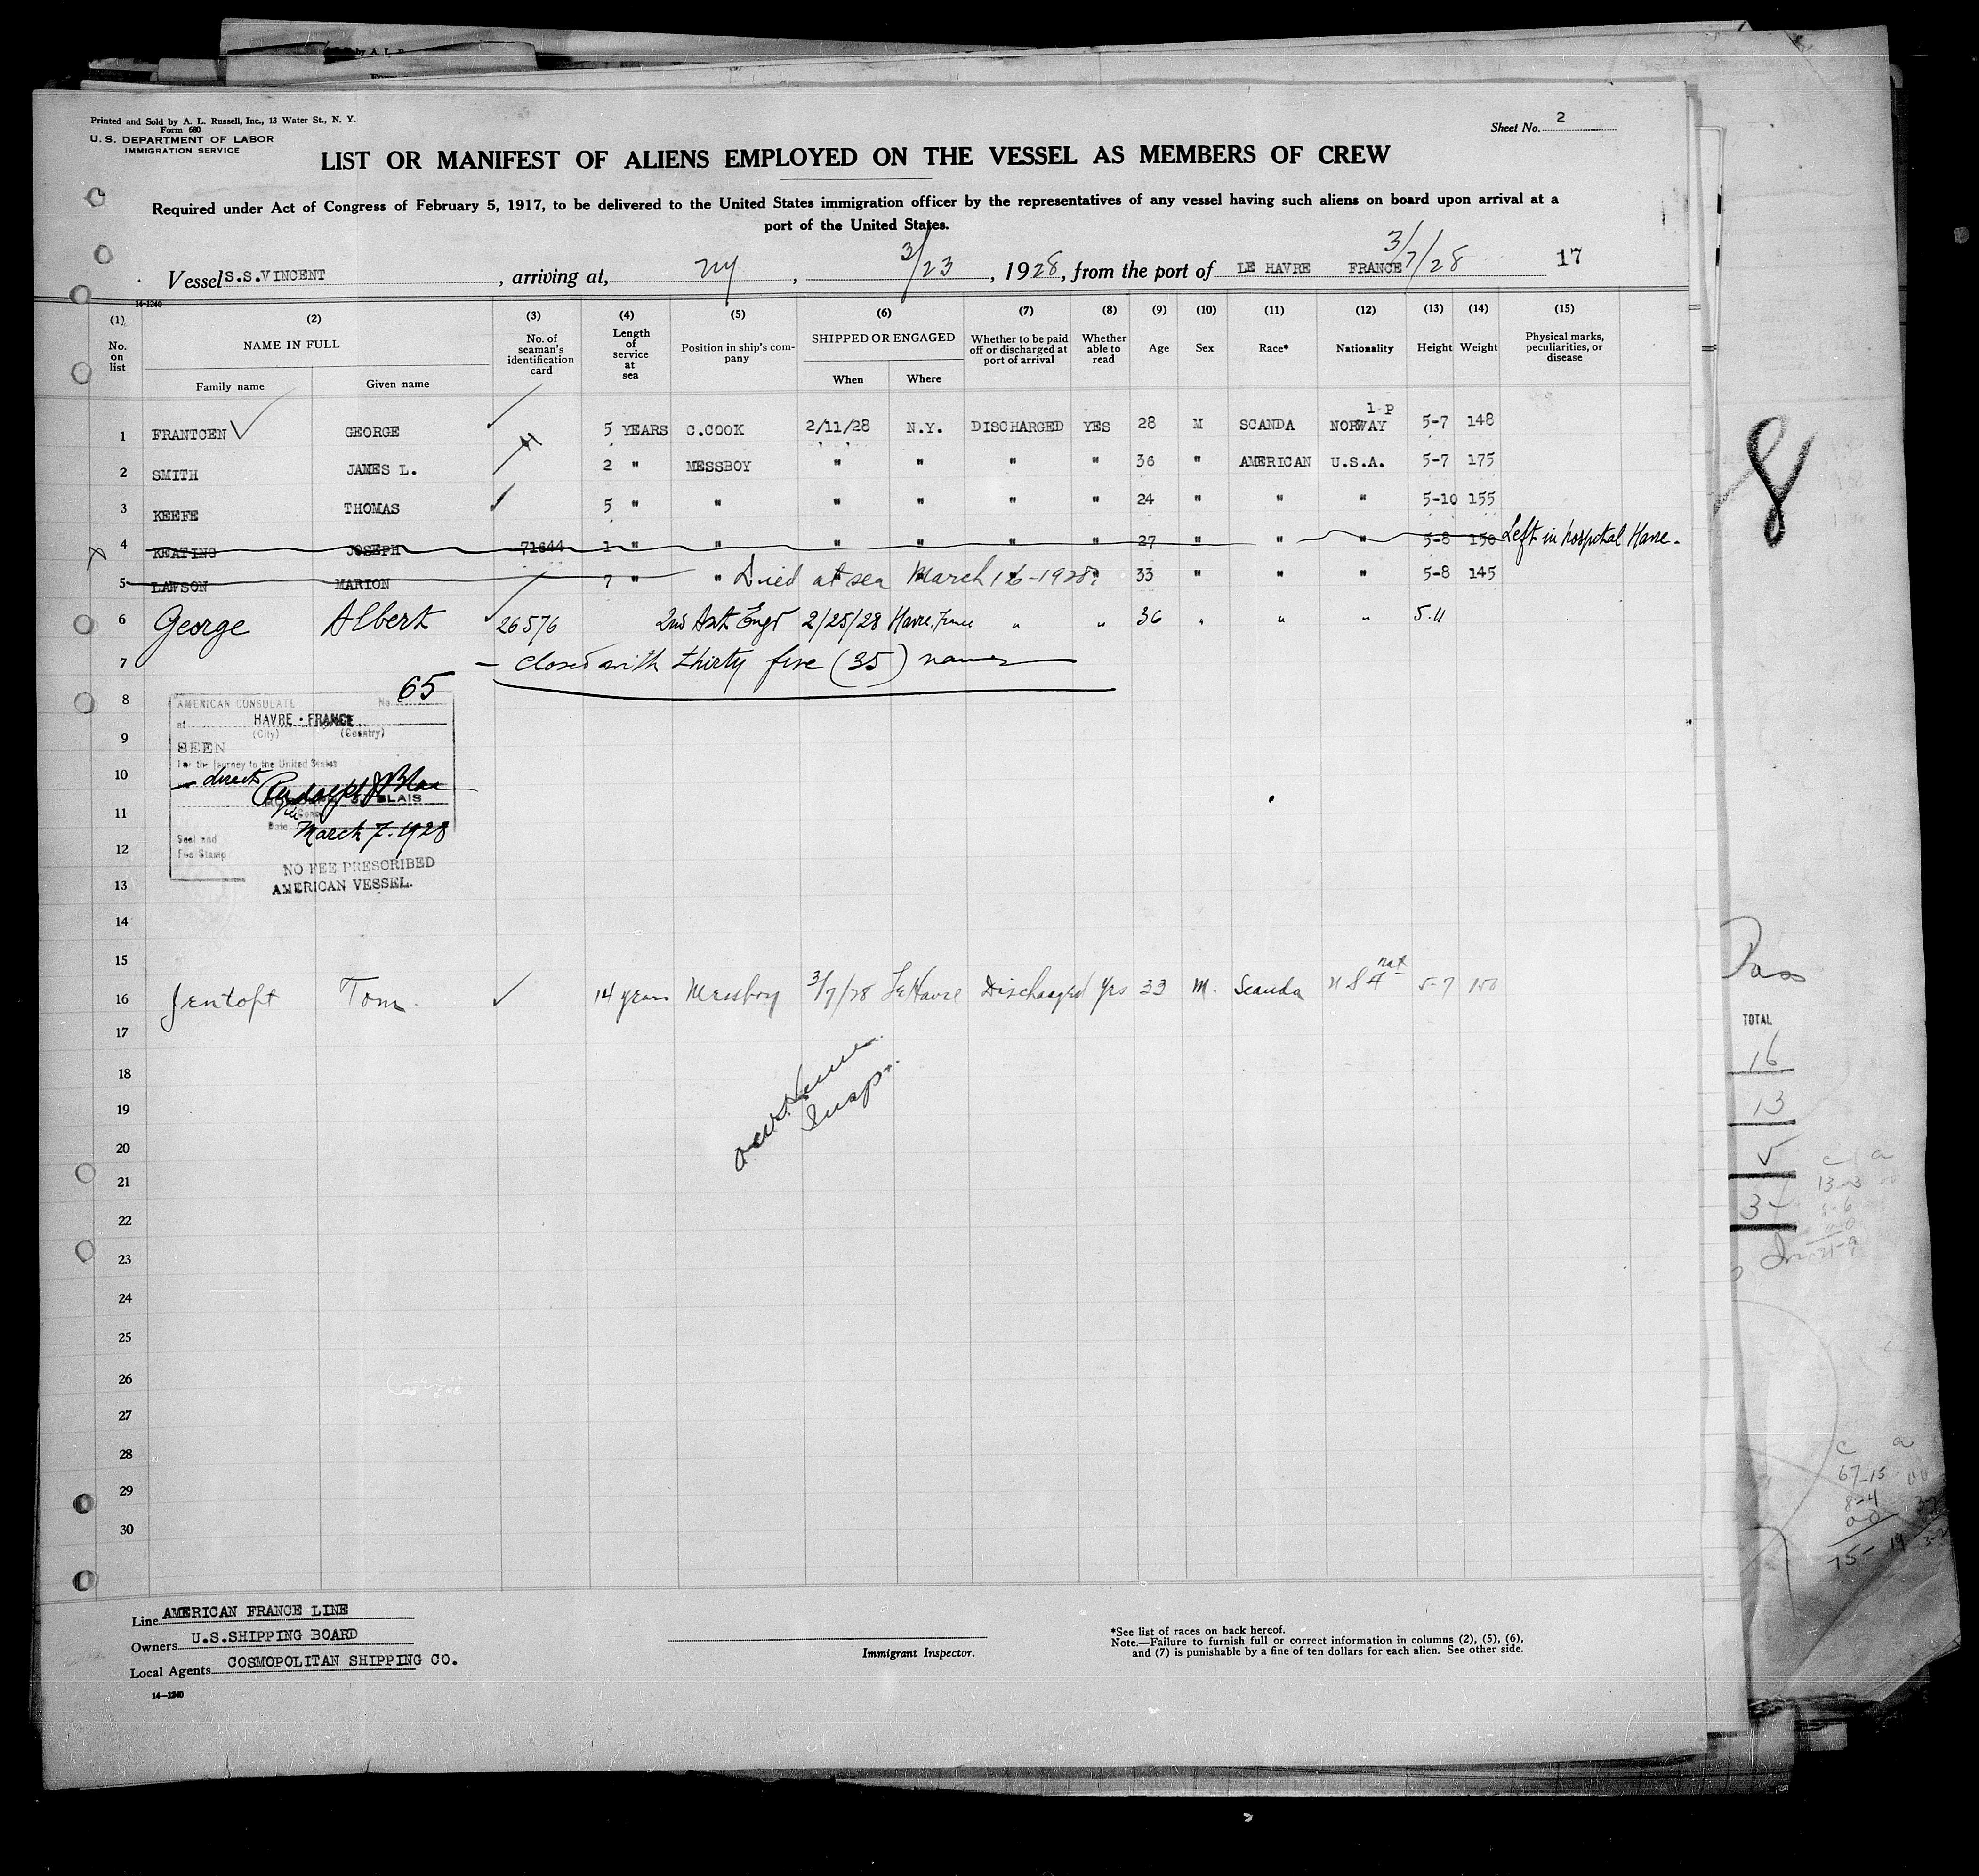 Printed and Sold by A. L. Russell, Inc., 13 Water St., N. Y.
Form 680
U. S. DEPARTMENT OF LABOR
IMMIGRATION SERVICE
Sheet No. 2
LIST OR MANIFEST OF ALIENS EMPLOYED ON THE VESSEL AS MEMBERS OF CREW
Required under Act of Congress of February 5, 1917, to be delivered to the United States immigration officer by the representatives of any vessel having such aliens on board upon arrival at a
port of the United States.
Vessel S.S.VINCENT, arriving at, NY, 3/23, 1928, from the port of LE HAVRE FRANCE 3/7/28 17
14-1240
(1) (2) (3) (4) (5) (6) (7) (8) (9) (10) (11) (12) (13) (14) (15)
No. on list
NAME IN FULL
Family name Given name
No. of seaman's identification card
Length of service at sea
Position in ship's company
SHIPPED OR ENGAGED
When Where
Whether to be paid off or discharged at port of arrival
Whether able to read
Age
Sex
Race*
Nationality
Height
Weight
Physical marks, peculiarities, or disease
1 P
1 FRANTCEN GEORGE 5 YEARS C.COOK 2/11/28 N.Y. DISCHARGED YES 28 M SCANDA NORWAY 5-7 148
2 SMITH JAMES L. 2 " MESSBOY " " " " 36 " AMERICAN U.S.A. 5-7 175
3 KEEFE THOMAS 5 " " " " " " 24 " " " 5-10 155
4 KEATING JOSEPH 71644 1 " " " " " " 27 " " " 5-8 150 Left in hospital Havre.
5 LAWSON MARION 7 " " Died at sea March 16-1928 " 33 " " " 5-8 145
6 George Albert 26576 2nd Asst Engr 2/25/28 Havre. France " " 36 " " " 5.11
7 – closed with thirty five (35) names
8
AMERICAN CONSULATE No. 65
at HAVRE - FRANCE
(City) (Country)
9
SEEN
For the journey to the United States
10
direct
11
BLAIS
Date March 7. 1928
Seal and
Fee Stamp
12
NO FEE PRESCRIBED
AMERICAN VESSEL.
13
14
15
16 Jentoft Tom. 14 years Messboy 3/7/28 Le Havre Discharged Yes 33 M. Scanda USA nat 5-7 150
17
18
Insp.
19
20
21
22
23
24
25
26
27
28
29
30
Line AMERICAN FRANCE LINE
Owners U.S.SHIPPING BOARD
Local Agents COSMOPOLITAN SHIPPING CO.
14—1240
Immigrant Inspector.
*See list of races on back hereof.
Note.—Failure to furnish full or correct information in columns (2), (5), (6),
and (7) is punishable by a fine of ten dollars for each alien. See other side.
8
Pass
TOTAL
16
13
c a
67-15
8-4